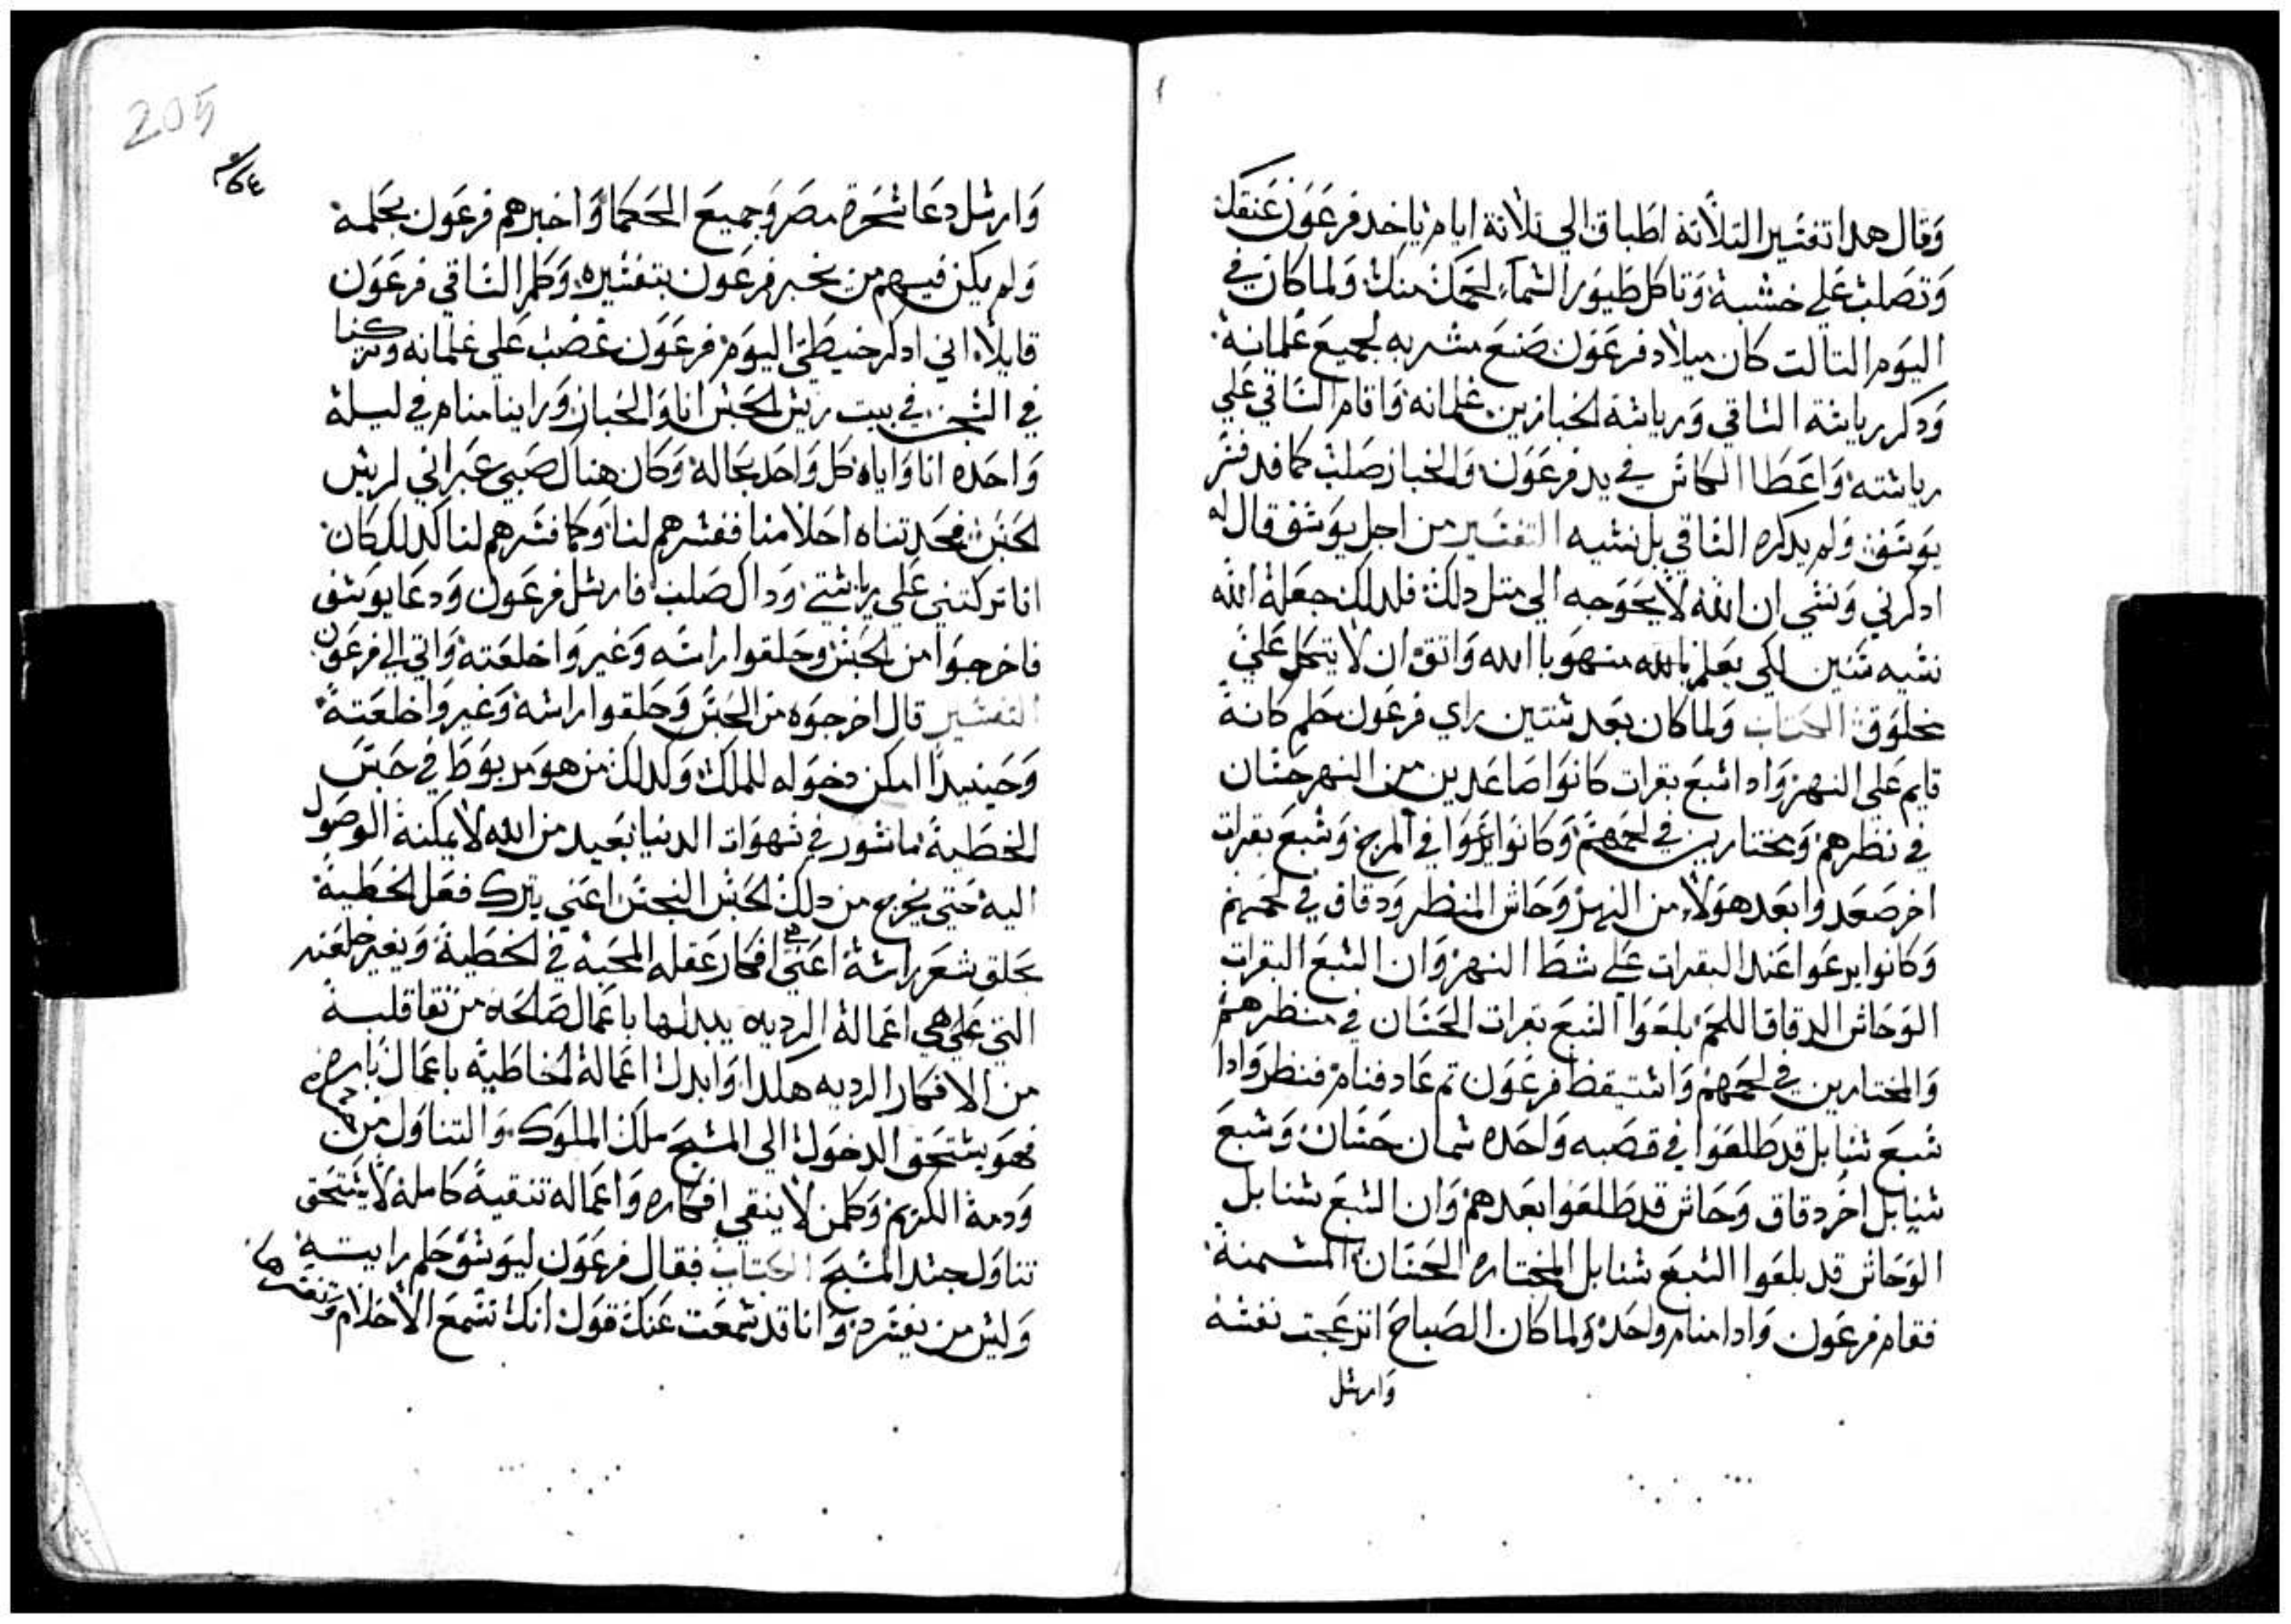 وقال هدا تفسير التلاتة اطباق الي تلاتة ايام ياخد فرعون عنقك
وتصلب علي خشبة وتاكل طيور السماء لحمك منك ولما كان في
اليوم التالت كان ميلاد فرعون صنع مشربه لجميع غلمانه
ودكر رياسة الساقي ورياسة الخبازين غلمانه واقام الساقي علي
رياسته واعطا الكاس في يد فرعون والخباز صلب كما قد فسر
يوسف ولم يدكره الساقي بل نسيه التفسير من اجل يوسف قال له
ادكرني ونسي ان الله لا يحوجه الي متل دلك فلدلك جعله الله
نسيه سنين لكي يعلم بالله منهو با الله واتق ان لا يتكل علي
مخلوق الكتاب ولما كان بعد سنتين راي فرعون حلم كانه
قايم علي النهر وادا سبع بقرات كانوا صاعدين من النهر حسان
في نظرهم ومختارين في لحمهم وكانوا يرعوا في المرج وسبع بقرات
اخر صعدوا بعد هولاء من النهر وحاش المنظر ودقاق في لحمهم
وكانوا يرعوا عند البقرات علي شط النهر وان السبع البقرات
الوحاش الدقاق اللحم بلعوا السبع بقرات الحسان في منظرهم
والمختارين في لحمهم واستيقظ فرعون تم عاد فنام فنظر وادا
سبع سنابل قد طلعوا في قصبه واحده سمان حسان وسبع
سنابل اخر دقاق وحاش قد طلعوا بعدهم وان السبع سنابل
الوحاش قد بلعوا السبع سنابل المختاره الحسان المسمنة
فقام فرعون وادا منام واحد ولما كان الصباح انزعجت نفسه
وارسل
205
وارسل دعا سحرة مصر وجميع الحكما واخبرهم فرعون بحلمه
ولم يكن فيهم من يخبر فرعون بتفسيره وكلم الساقي فرعون
قايلا اني ادكر خيطتي اليوم فرعون غضب علي غلمانه وتركنا
في السجن في بيت ريس الحبس انا والخباز وراينا منام في ليلة
واحده انا واياه كل واحد بحاله وكان هناك صبي عبراني لريس
الحبس فحدتناه احلامنا ففسرهم لنا وكما فسرهم لنا كدلك كان
انا تركتني علي رياستي وداك صلب فارسل فرعون ودعا يوسف
فاخرجوا من الحبس وحلقوا راسه وغيروا خلعته واتي الي فرعون
التفسير قال اخرجوه من الحبس وحلقوا راسه وغيروا خلعته
وحينيدا امكن دخوله للملك وكدلك من هو مربوط في حبس
الخطية ماسور في شهوات الدنيا بعيد من الله لا يمكنه الوصول
اليه حتي يخرج من دلك الحبس النجس اعني يترك فعل الخطية
يحلق شعر راسة اعني افكار عقله المحبة في الخطية ويغير خلعته
التي عليه هي اعماله الرديه يبدلها باعمال صالحه من نقا قلبه
من الافكار الرديه هكدا وابدل اعماله الخاطية باعمال باره
فهو يستحق الدخول الي المسيح ملك الملوك والتناول من جسده
ودمه الكريم وكلمن لا ينقي افكاره واعماله تنقية كاملة لا يستحق
تناول جسد المسيح الكتاب فقال فرعون ليوسف حلم رايته
وليس من يفسره وانا قد سمعت عنك قول انك تسمع الاحلام وتفسرها